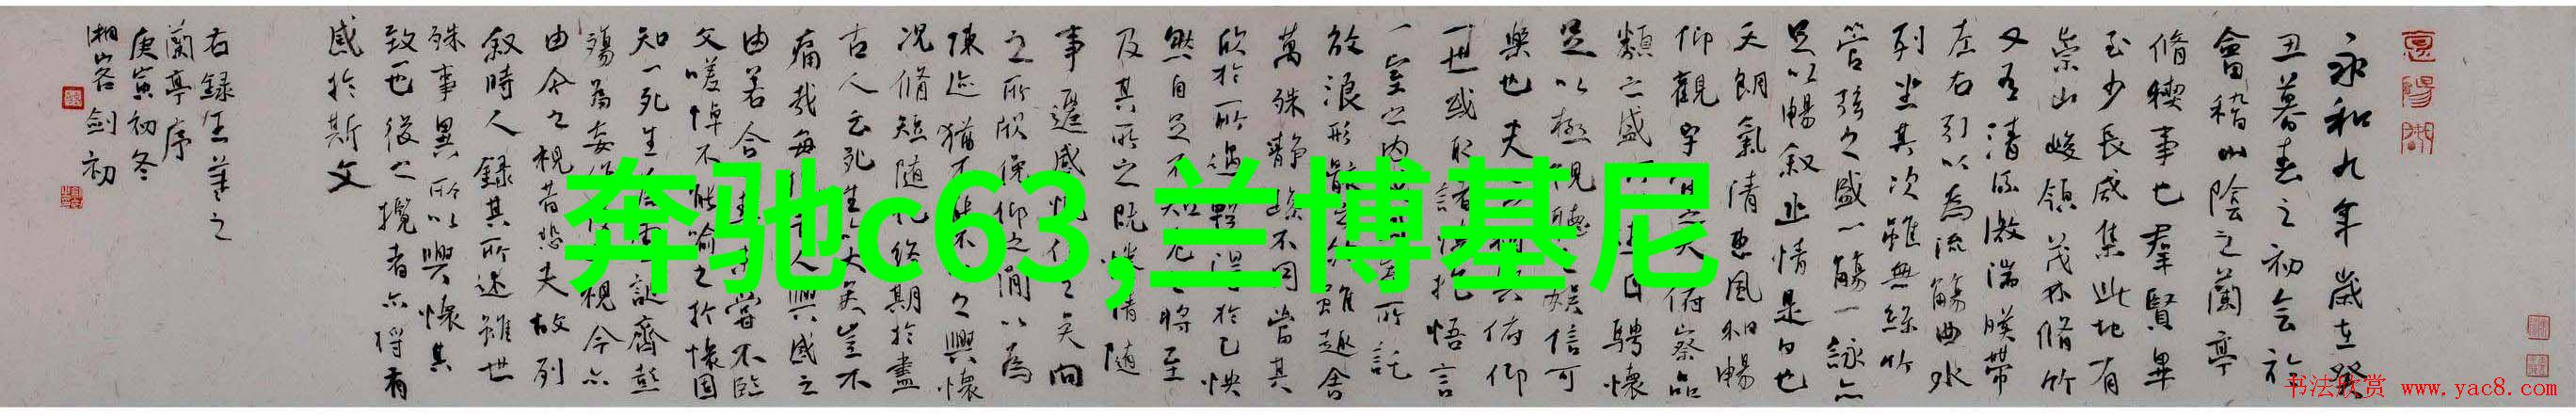 永和九年歲在癸
丑暮春之初会於
會稽山陰之蘭亭
脩稧事也羣賢畢
至少長咸集此地有
崇山峻領茂林脩竹
又有清流激湍暎帶
左右引以為流觴曲水
列坐其次雖無絲竹
管弦之盛一觴一詠亦
足以暢叙幽情是日也
天朗氣清惠風和暢
仰觀宇宙之大俯察品
類之盛所以遊目騁懷
足以極視聽之娛信可
樂也夫人之相與俯仰
一世或取諸懷抱悟言
一室之内或因寄所託
放浪形骸之外雖趣舍
萬殊静躁不同當其
欣於所遇暫得於己怏
然自足不知老之將至
及其所之既惓情随
事遷感慨係之矣向
之所欣俛仰之間以為
陳迹猶不能不以之興懷
况脩短随化終期於盡
古人云死生亦大矣豈不
痛哉每攬昔人興感之
由若合一契未嘗不臨
文嗟悼不能喻之於懷固
知一死生為虛誕齊彭
殤為妄作後之視今亦
由今之視昔悲夫故列
叙時人録其所述雖世
殊事異所以興懷其
致一也後之攬者亦將有
感於斯文
右録王羲之
蘭亭序
庚寅初冬
湘客剑初
奔驰c63,兰博基尼
书法欣赏 www.yac8.com